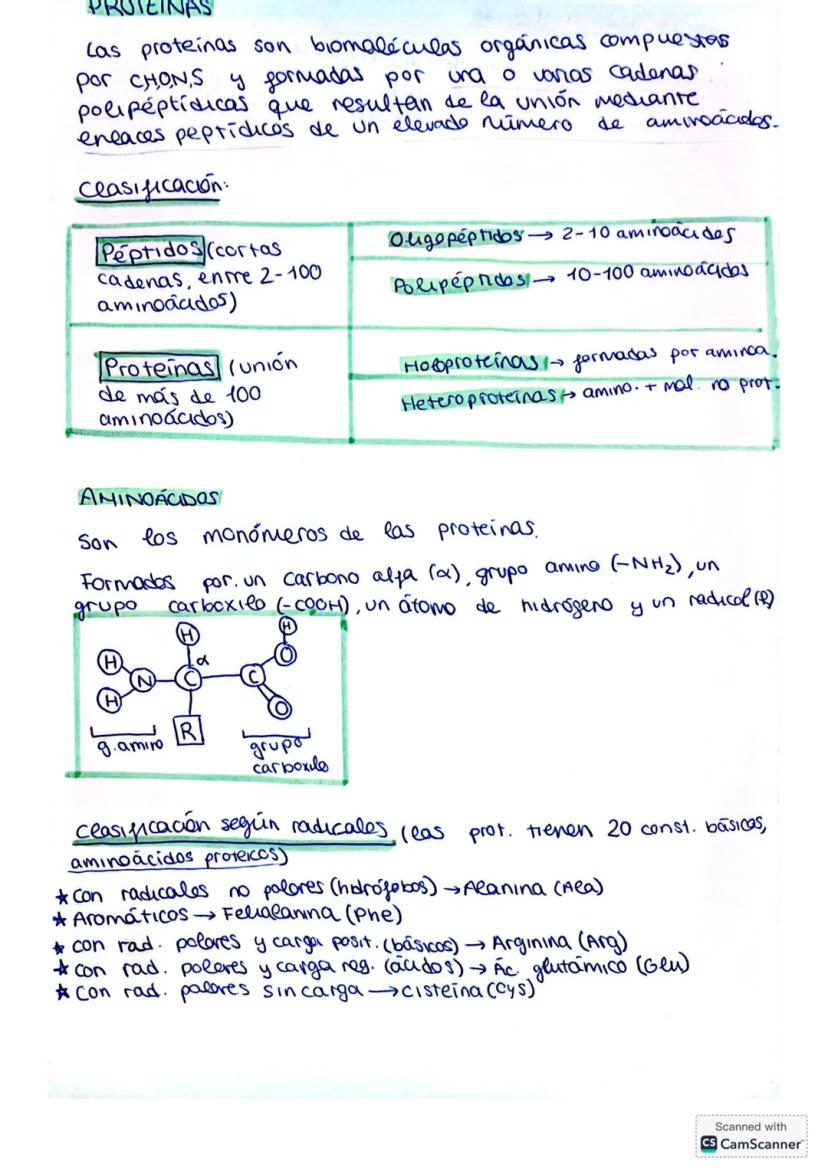 PROTEÍNAS
Las proteínas son biomoléculas orgánicas compuestas
por CHONS y formadas por una o varias cadenas
polipéptídicas que resultan de la unión mediante
enlaces peptídicos de un elevado número de aminoácidos.
Clasificación:
Péptidos (cortas
cadenas, entre 2-100
aminoácidos)
Oligopéptidos → 2-10 aminoácidos
Polipéptidos → 10-100 aminoácidos
Proteínas (unión
de más de 100
aminoácidos)
Holoproteínas → formadas por aminoa.
Heteroproteínas → amino. + mol. no prot.
AMINOÁCIDOS
Son los monómeros de las proteínas.
Formados por. un carbono alfa (α), grupo amino (-NH₂), un
grupo carboxilo (-COOH), un átomo de hidrógeno y un radical (R)
H H
H α O
N C C
H O
R
g. amino
grupo
carboxilo
Clasificación según radicales (las prot. tienen 20 const. básicas,
aminoácidos proteicos)
★ Con radicales no polares (hidrófobos) → Alanina (Ala)
★ Aromáticos → Fenilalanina (Phe)
★ con rad. polares y carga posit. (básicos) → Arginina (Arg)
★ con rad. polares y carga neg. (ácidos) → Ác. glutámico (Glu)
★ Con rad. polares sin carga → cisteína (Cys)
Scanned with
CS CamScanner